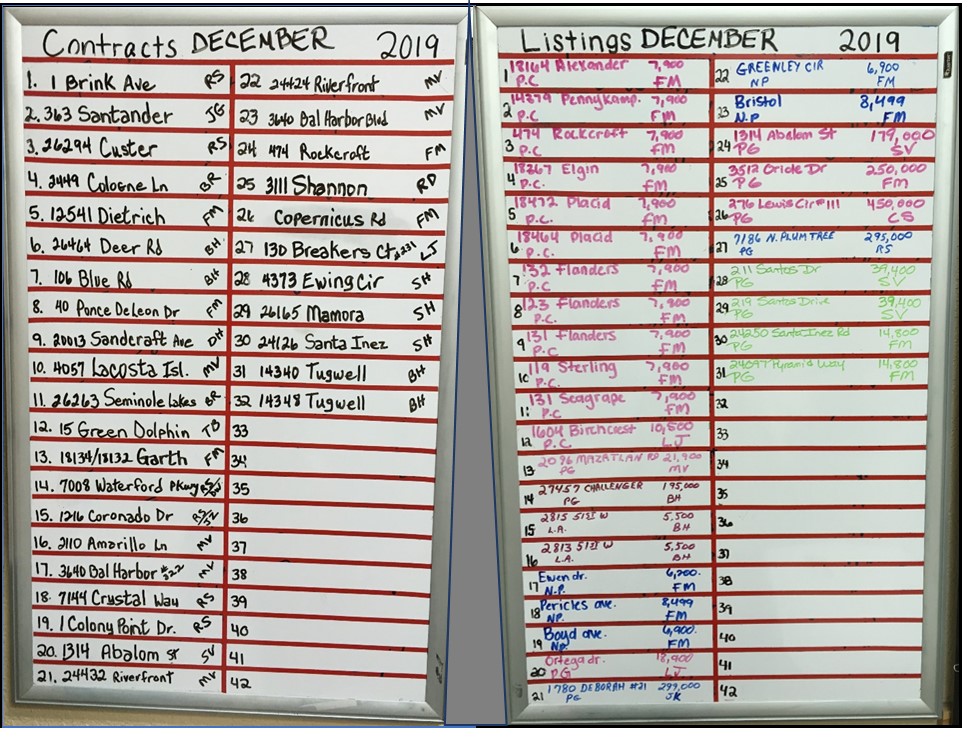 Contracts DECEMBER 2019
1. 1 Brink Ave RS
2. 363 Santander JG
3. 26294 Custer RS
4. 2449 Cologne Ln BR
5. 12541 Dietrich FM
6. 26464 Deer Rd BH
7. 106 Blue Rd BH
8. 40 Ponce De Leon Dr FM
9. 20013 Sandcraft Ave DH
10. 4057 Lacosta Isl. MV
11. 26263 Seminole Lakes BR
12. 15 Green Dolphin TB
13. 18134/18132 Garth FM
14. 7008 Waterford Pkwy
15. 1216 Coronado Dr
16. 2110 Amarillo Ln MV
17. 3640 Bal Harbor #322 MV
18. 7144 Crystal Way RS
19. 1 Colony Point Dr. RS
20. 1314 Abalom st SV
21. 24432 Riverfront MV
22 24424 Riverfront MV
23 3640 Bal Harbor Blvd MV
24 474 Rockcroft FM
25 3111 Shannon RD
26 Copernicus Rd FM
27 130 Breakers Ct #231 LJ
28 4373 Ewing Cir SH
29 26165 Mamora SH
30 24126 Santa Inez SH
31 14340 Tugwell BH
32 14348 Tugwell BH
33
34
35
36
37
38
39
40
41
42
Listings DECEMBER 2019
1 18164 Alexander 7,900
P.C FM
2 14279 Pennykamp. 7,900
P.C FM
3 474 Rockcroft 7,900
P.C FM
4 18267 Elgin 7,900
P.C. FM
5 18472 Placid 7,900
P.C. FM
6 18464 Placid 7,900
P.C. FM
7 132 Flanders 7,900
P.C. FM
8 123 Flanders 7,900
P.C. FM
9 131 Flanders 7,900
P.C. FM
10 119 Sterling 7,900
P.C. FM
11 131 Seagrape 7,900
P.C. FM
12 1604 Birchcrest 10,500
P.C. LJ
13 2096 MAZATLAN RD 21,900
PG MV
14 27457 CHALLENGER 195,000
PG BH
15 2815 51st W 5,500
L.A. BH
16 2813 51st W 5,500
L.A. BH
17 Ewen dr. 6,200.
N.P. FM
18 Pericles ave. 8,499
NP. FM
19 Boyd ave. 6,900.
NP. FM
20 Ortega dr. 18,900
P.G LJ
21 1780 DEBORAH #21 299,000
PG JK
22 GREENLEY CIR 6,900
NP FM
23 Bristol 8,499
N.P FM
24 1314 Abalom St 179,000
PG SV
25 3512 Oriole Dr 250,000
PG FM
26 276 Lewis Cir #111 450,000
PG CS
27 7186 N. PLUM TREE 295,000
PG RS
28 211 Santos Dr 39,400
PG SV
29 219 Santos Drive 39,400
PG SV
30 24250 Santa Inez Rd 14,800
PG FM
31 24097 Pyramid Way 14,800
PG FM
32
33
34
35
36
37
38
39
40
41
42